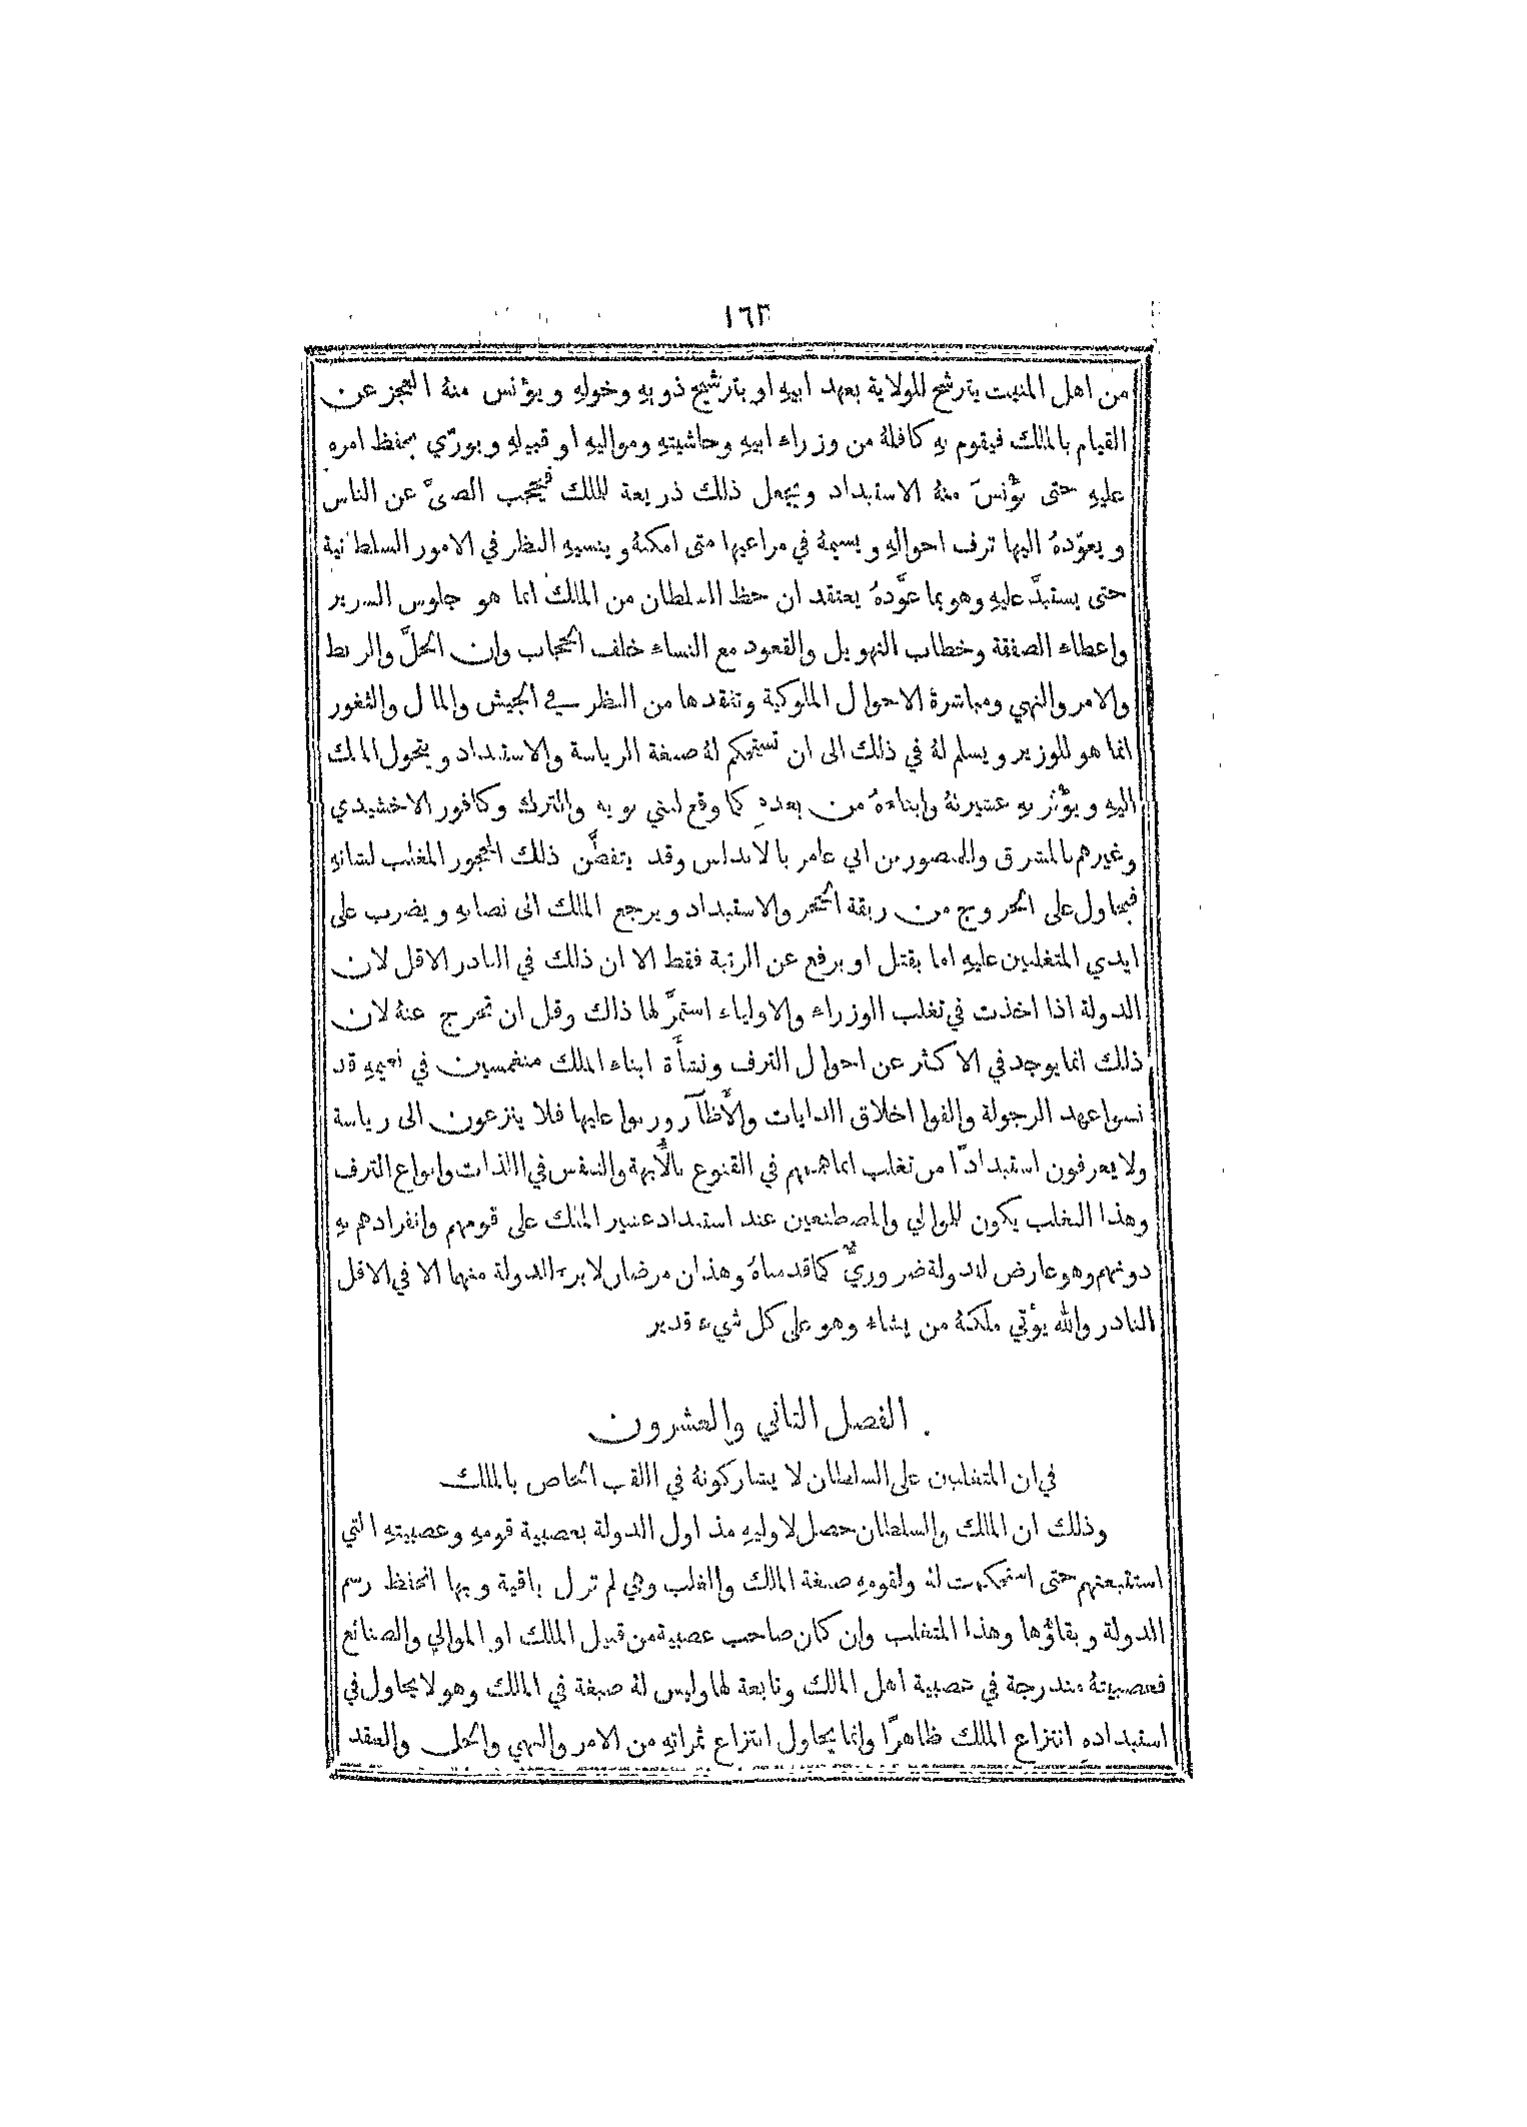 ١٦٣
من اهل المنبت يترشح للولاية بعهد ابيهِ او بترشيح ذويهِ وخولهِ ويؤنس منهُ العجز عن
القيام بالملك فيقوم بهِ كافلهُ من وزراء ابيهِ وحاشيتهِ ومواليهِ او قبيلهِ ويورّي بحفظ امرهِ
عليهِ حتى يؤنسَ منهُ الاستبداد ويجعل ذلك ذريعة للملك فيحجب الصبيّ عن الناس
ويعوّدهُ اليها ترف احوالهِ ويسيمهُ في مراعيها متى امكنهُ وينسيهِ النظر في الامور السلطانية
حتى يستبدَّ عليهِ وهو بما عوَّدهُ يعتقد ان حظ السلطان من الملك انما هو جلوس السرير
واعطاء الصفقة وخطاب التهويل والقعود مع النساء خلف الحجاب وان الحلَّ والربط
والامر والنهي ومباشرة الاحوال الملوكية وتفقدها من النظر في الجيش والمال والثغور
انما هو للوزير ويسلم لهُ في ذلك الى ان تستحكم لهُ صبغة الرياسة والاستبداد ويتحول الملك
اليهِ ويؤثر بهِ عشيرتهُ وابناءهُ من بعدهِ كما وقع لبني بويه والترك وكافور الاخشيدي
وغيرهم بالمشرق والمنصور بن ابي عامر بالاندلس وقد يتفطَّن ذلك المحجور المغلب لشانهِ
فيحاول على الخروج من ربقة الحجر والاستبداد ويرجع الملك الى نصابهِ ويضرب على
ايدي المتغلبين عليهِ اما بقتل او برفع عن الرتبة فقط الا ان ذلك في النادر الاقل لان
الدولة اذا اخذت في تغلب الوزراء والاولياء استمرَّ لها ذلك وقل ان تخرج عنهُ لان
ذلك انما يوجد في الاكثر عن احوال الترف ونشأَة ابناء الملك منغمسين في نعيمهِ قد
نسوا عهد الرجولة والفوا اخلاق الدايات والأَظآر وربوا عليها فلا ينزعون الى رياسة
ولا يعرفون استبدادًا من تغلب انما همهم في القنوع بالأُبهة والتنفس في اللذات وانواع الترف
وهذا التغلب يكون للموالي والمصطنعين عند استبداد عشير الملك على قومهم وانفرادهم بهِ
دونهم وهو عارض للدولة ضروريٌّ كما قدمناهُ وهذان مرضان لا برء للدولة منهما الا في الاقل
النادر والله يؤتي ملكهُ من يشاء وهو على كل شيء قدير
الفصل الثاني والعشرون
في ان المتغلبين على السلطان لا يشاركونهُ في اللقب الخاص بالملك
وذلك ان الملك والسلطان حصل لاوليهِ مذ اول الدولة بعصبية قومهِ وعصبيتهِ التي
استتبعتهم حتى استحكمت لهُ ولقومهِ صبغة الملك والغلب وهي لم تزل باقية وبها انحفظ رسم
الدولة وبقاؤها وهذا المتغلب وان كان صاحب عصبية من قبيل الملك او الموالي والصنائع
فعصبيتهُ مندرجة في عصبية اهل الملك وتابعة لها وليس لهُ صبغة في الملك وهو لا يحاول في
استبدادهِ انتزاع الملك ظاهرًا وانما يحاول انتزاع ثمراتهِ من الامر والنهي والحل والعقد